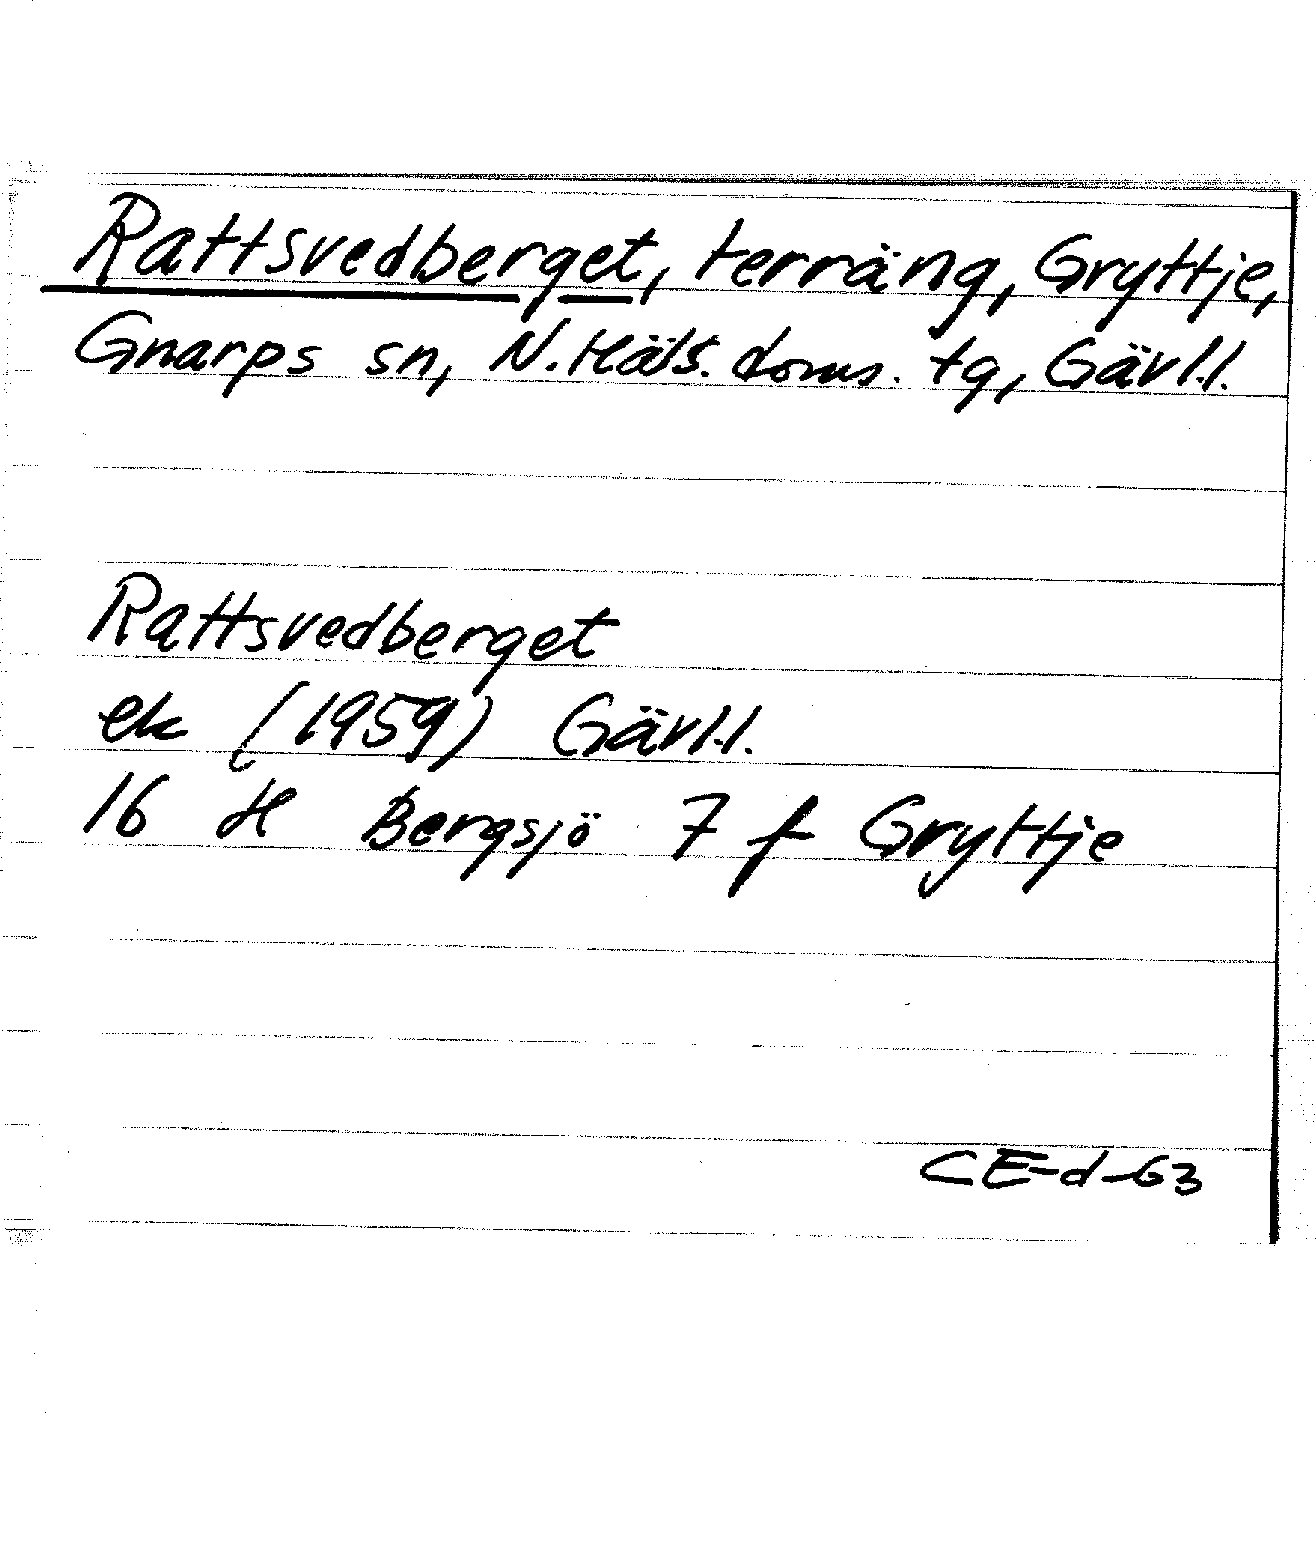 Rattsvedberget, terräng, Gryttje,
Gnarps sn, N. Häls. doms. tg, Gävl.l.
Rattsvedberget
ek (1959) Gävl.l.
16 H Bergsjö 7 f Gryttje
CE-d-63